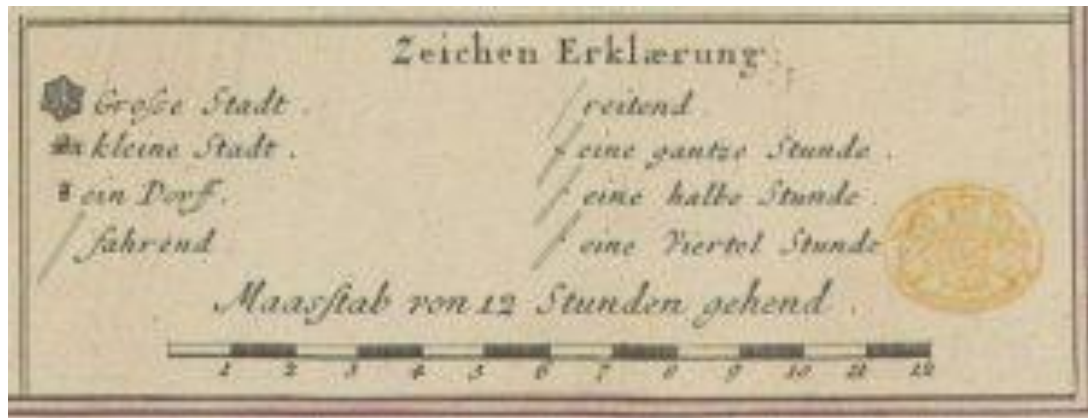 Zeichen Erklærung.
Große Stadt.
kleine Stadt.
ein Dorff.
fahrend
reitend
eine gantze Stunde.
eine halbe Stunde.
eine Viertel Stunde
Maasstab von 12 Stunden gehend.
1 2 3 4 5 6 7 8 9 10 11 12